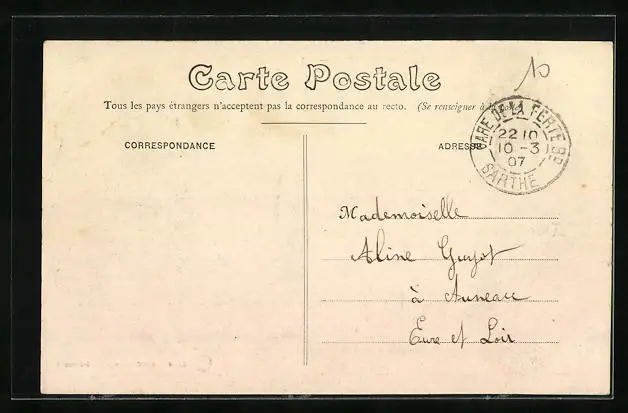 10
Carte Postale
Tous les pays étrangers n'acceptent pas la correspondance au recto. (Se renseigner à la
CORRESPONDANCE
ADRESSE
GARE DE LA FERTE BD
22 10
10 - 3
07
SARTHE
Mademoiselle
Aline Guyot
à Auneau
Eure et Loir